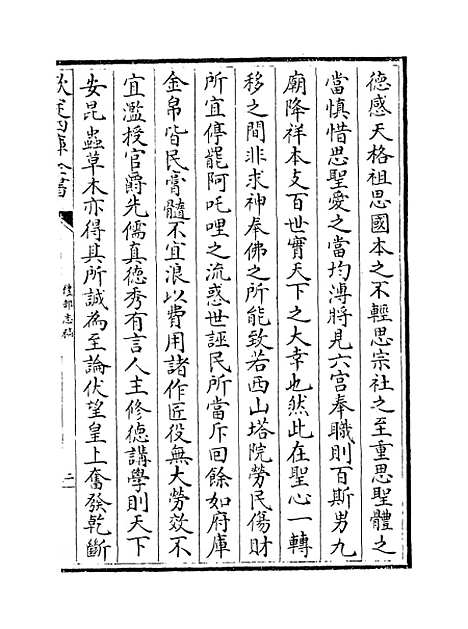 德感天格祖思國本之不輕思宗社之至重思聖體之
當慎惜思聖愛之當均溥將見六宮奉職則百斯男九
廟降祥本支百世實天下之大幸也然此在聖心一轉
移之間非求神奉佛之所能致若西山塔院勞民傷財
所宜停罷阿吒哩之流惑世誣民所當斥回餘如府庫
金帛皆民膏髓不宜浪以費用諸作匠役無大勞效不
宜濫授官爵先儒真德秀有言人主修德講學則天下
安昆蟲草木亦得其所誠為至論伏望皇上奮發乾斷
欽定四庫全書
禮部志稿
二